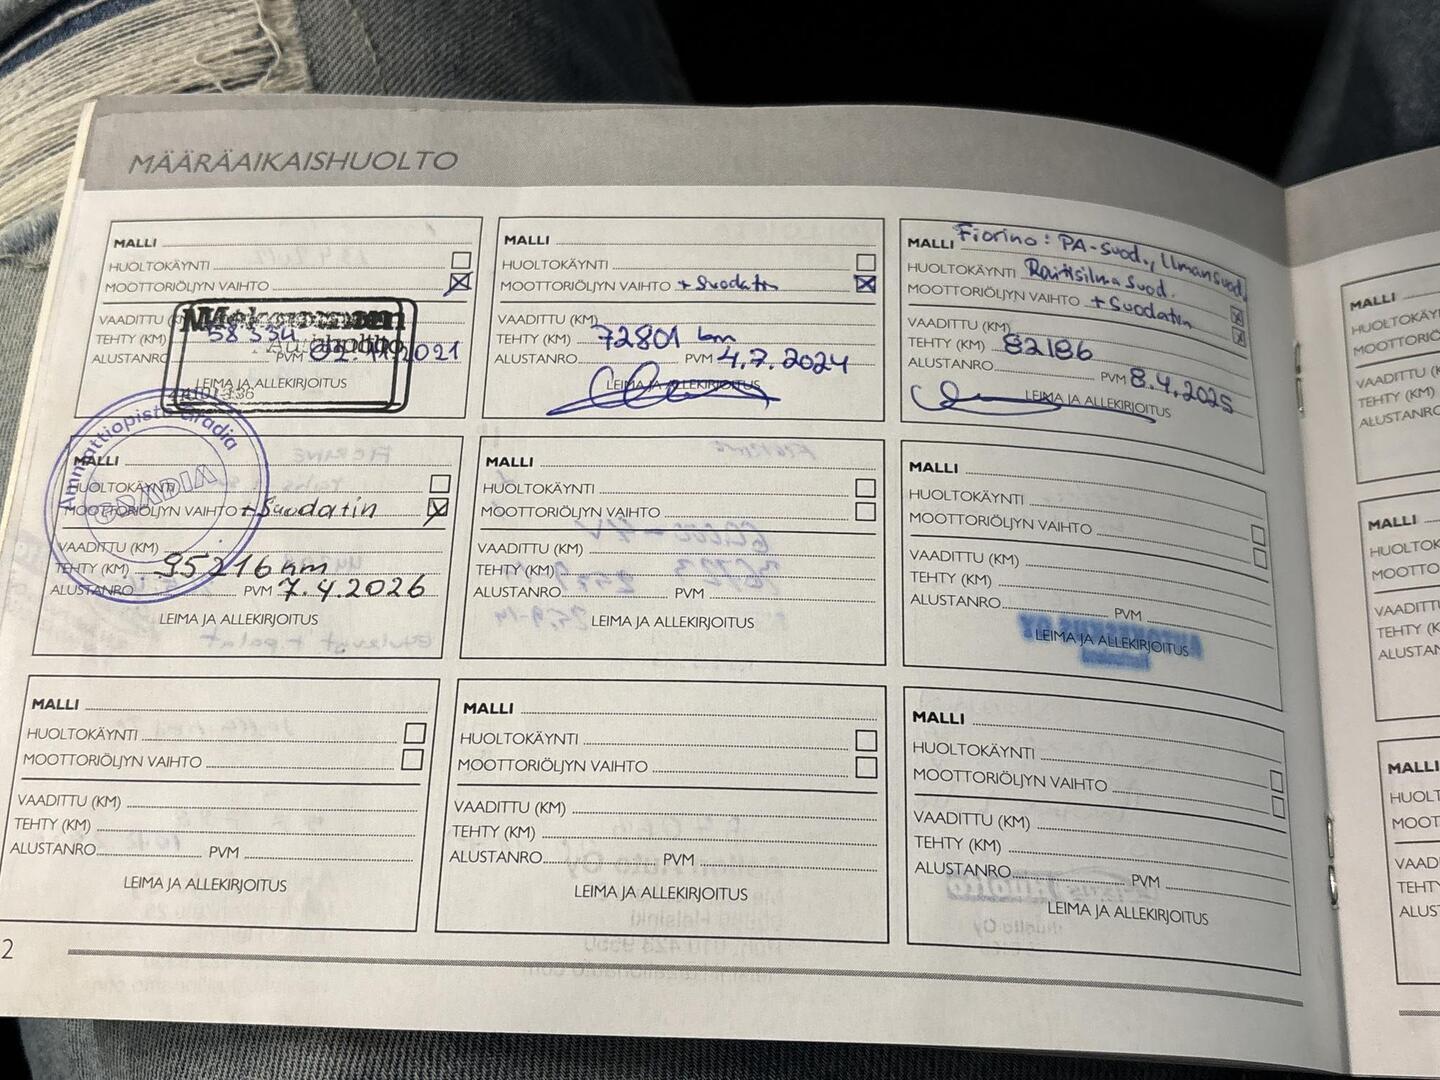 MÄÄRÄAIKAISHUOLTO
MALLI
HUOLTOKÄYNTI
MOOTTORIÖLJYN VAIHTO
VAADITTU (KM)
TEHTY (KM) 58 334
ALUSTANRO PVM 02.11.2021
LEIMA JA ALLEKIRJOITUS
MALLI
HUOLTOKÄYNTI
MOOTTORIÖLJYN VAIHTO + Suodatin
VAADITTU (KM)
TEHTY (KM) 72801 km
ALUSTANRO PVM 4.7.2024
LEIMA JA ALLEKIRJOITUS
MALLI Fiorino: PA-suod., Ilmansuod,
HUOLTOKÄYNTI Raitisilma suod.
MOOTTORIÖLJYN VAIHTO + Suodatin
VAADITTU (KM)
TEHTY (KM) 82186
ALUSTANRO PVM 8.4.2025
LEIMA JA ALLEKIRJOITUS
Ammattiopisto Gradia
GRADIA
MALLI
HUOLTOKÄYNTI
MOOTTORIÖLJYN VAIHTO + Suodatin
VAADITTU (KM)
TEHTY (KM) 95216 km
ALUSTANRO PVM 7.4.2026
LEIMA JA ALLEKIRJOITUS
MALLI
HUOLTOKÄYNTI
MOOTTORIÖLJYN VAIHTO
VAADITTU (KM)
TEHTY (KM)
ALUSTANRO PVM
LEIMA JA ALLEKIRJOITUS
MALLI
HUOLTOKÄYNTI
MOOTTORIÖLJYN VAIHTO
VAADITTU (KM)
TEHTY (KM)
ALUSTANRO PVM
LEIMA JA ALLEKIRJOITUS
MALLI
HUOLTOKÄYNTI
MOOTTORIÖLJYN VAIHTO
VAADITTU (KM)
TEHTY (KM)
ALUSTANRO PVM
LEIMA JA ALLEKIRJOITUS
MALLI
HUOLTOKÄYNTI
MOOTTORIÖLJYN VAIHTO
VAADITTU (KM)
TEHTY (KM)
ALUSTANRO PVM
LEIMA JA ALLEKIRJOITUS
MALLI
HUOLTOKÄYNTI
MOOTTORIÖLJYN VAIHTO
VAADITTU (KM)
TEHTY (KM)
ALUSTANRO PVM
LEIMA JA ALLEKIRJOITUS
2
MALLI